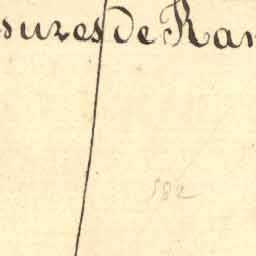 sures de Ran
582